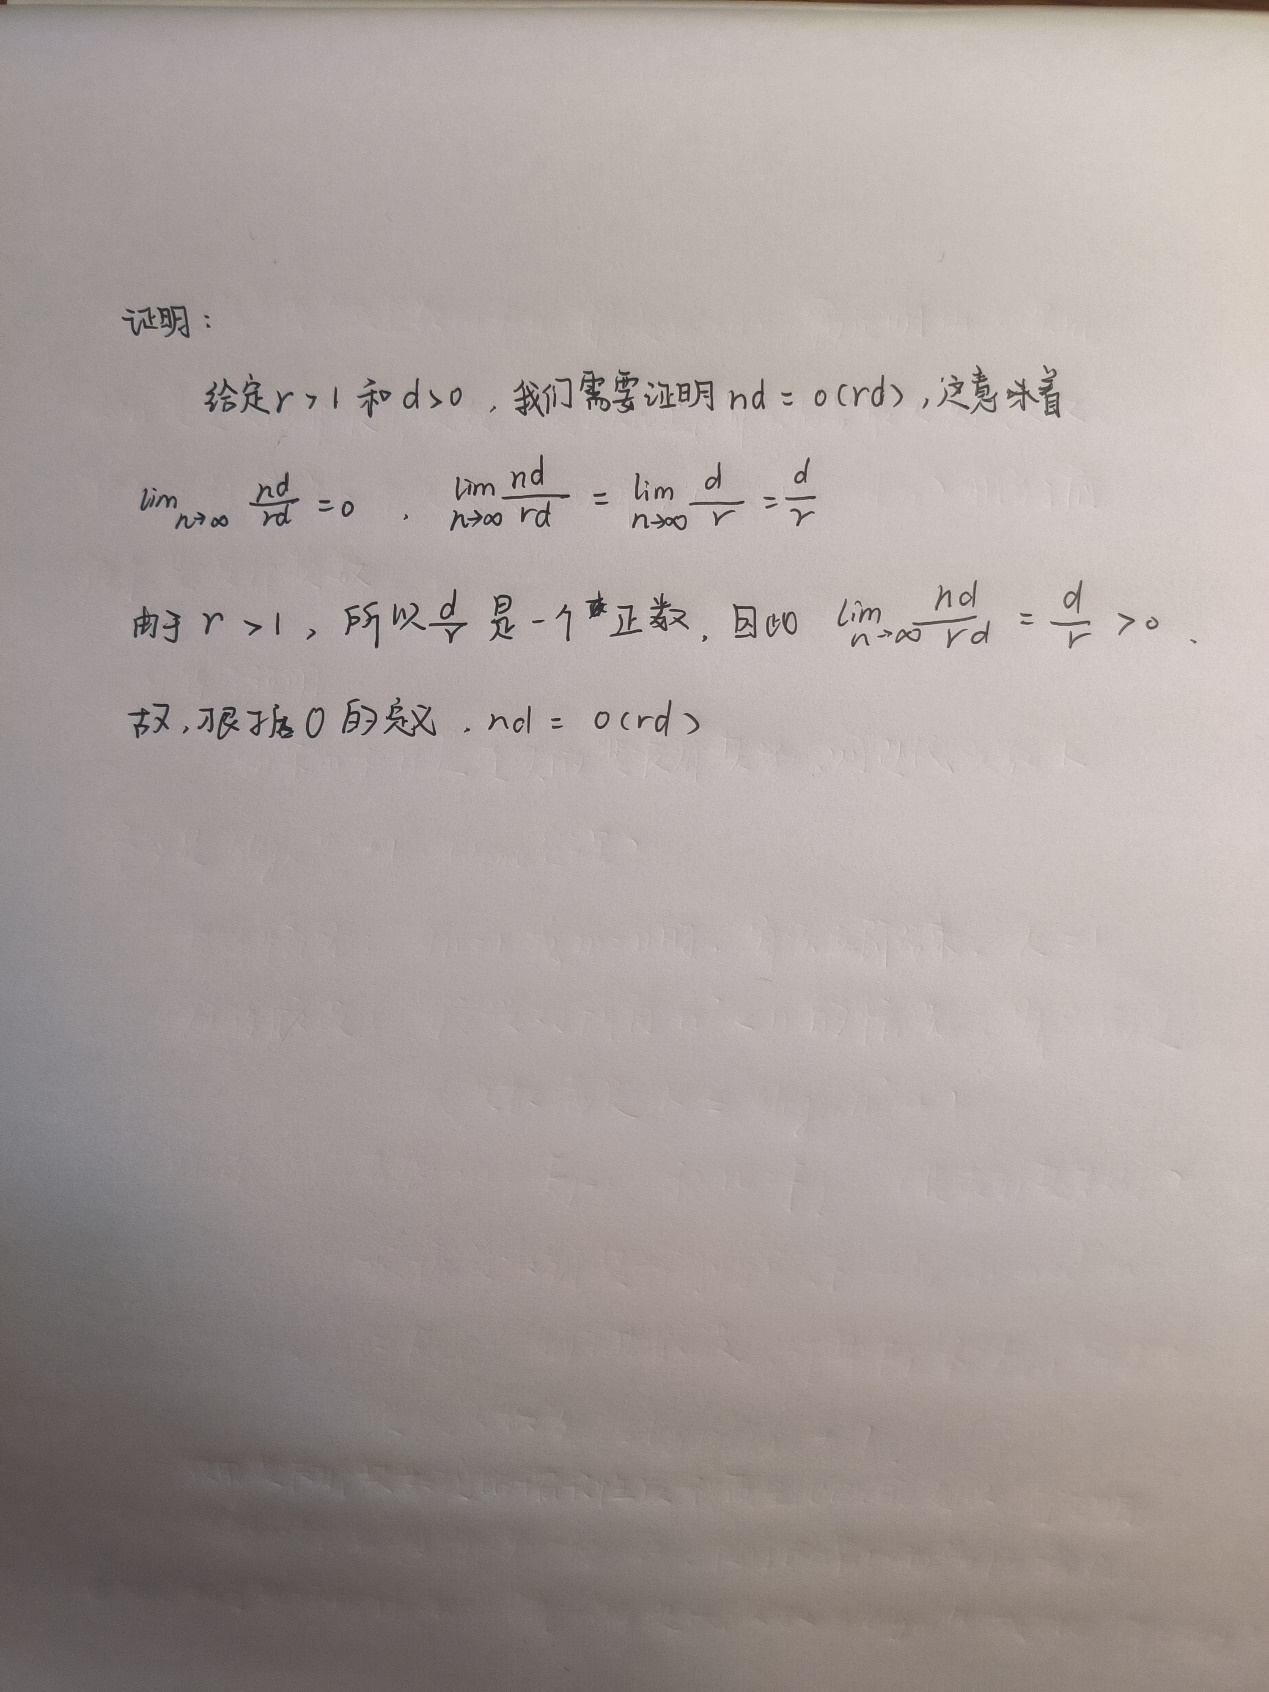 证明：
给定r>1和d>0，我们需要证明nd=o(rd)，这意味着
lim n→∞ nd/rd =0， lim n→∞ nd/rd = lim n→∞ d/r = d/r
由于r>1，所以d/r是一个正数，因此 lim n→∞ nd/rd = d/r >0．
故，根据O的定义．nd= o(rd)